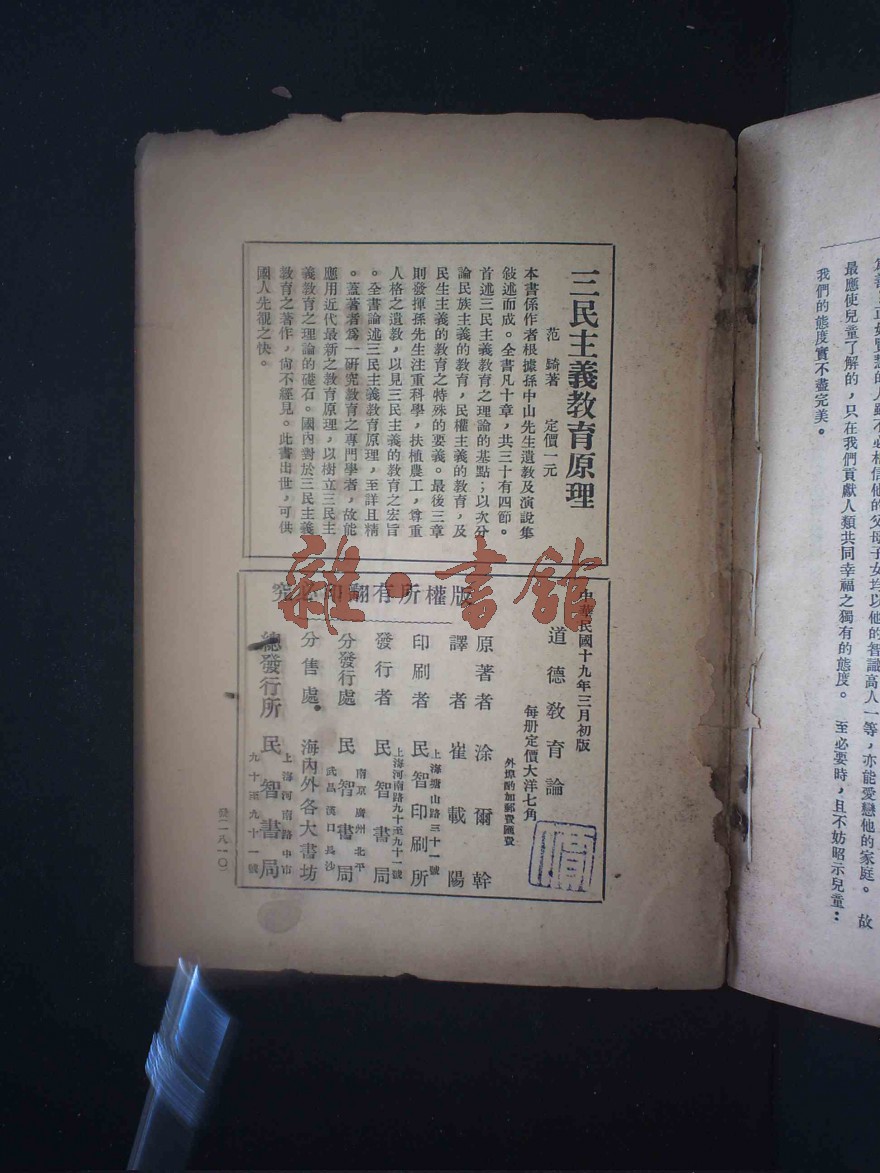 三民主義教育原理
范錡著 定價一元
本書係作者根據孫中山先生遺教及演說集
敍述而成。全書凡十章，共三十有四節。
首述三民主義教育之理論的基點；以次分
論民族主義的教育，民權主義的教育，及
民生主義的教育之特殊的要義。最後三章
則發揮孫先生注重科學，扶植農工，尊重
人格之遺教，以見三民主義的教育之宏旨
。全書論述三民主義教育原理，至詳且精
。蓋著者爲一研究教育之專門學者，故能
應用近代最新之教育原理，以樹立三民主
義教育之理論的礎石。國內對於三民主義
教育之著作，尙不經見。此書出世，可供
國人先覩之快。
版權所有翻印必究
中華民國十九年三月初版
道德敎育論
每册定價大洋七角
外埠酌加郵費匯費
原著者 涂爾幹
譯者 崔載陽
上海塘山路三十一號
印刷者 民智印刷所
上海河南路九十至九十一號
發行者 民智書局
南京 廣州 北平
分發行處 民智書局
武昌 漢口 長沙
分售處 海內外各大書坊
上海河南路中市
總發行所 民智書局
九十至九十一號
發二一八一〇
雜·書館
的人雖不必相信他的父母子女均以他的智識高人一等，亦能愛戀他的家庭。 故
最應使兒童了解的，只在我們貢獻人類共同幸福之獨有的態度。 至必要時，且不妨昭示兒童：
我們的態度實不盡完美。